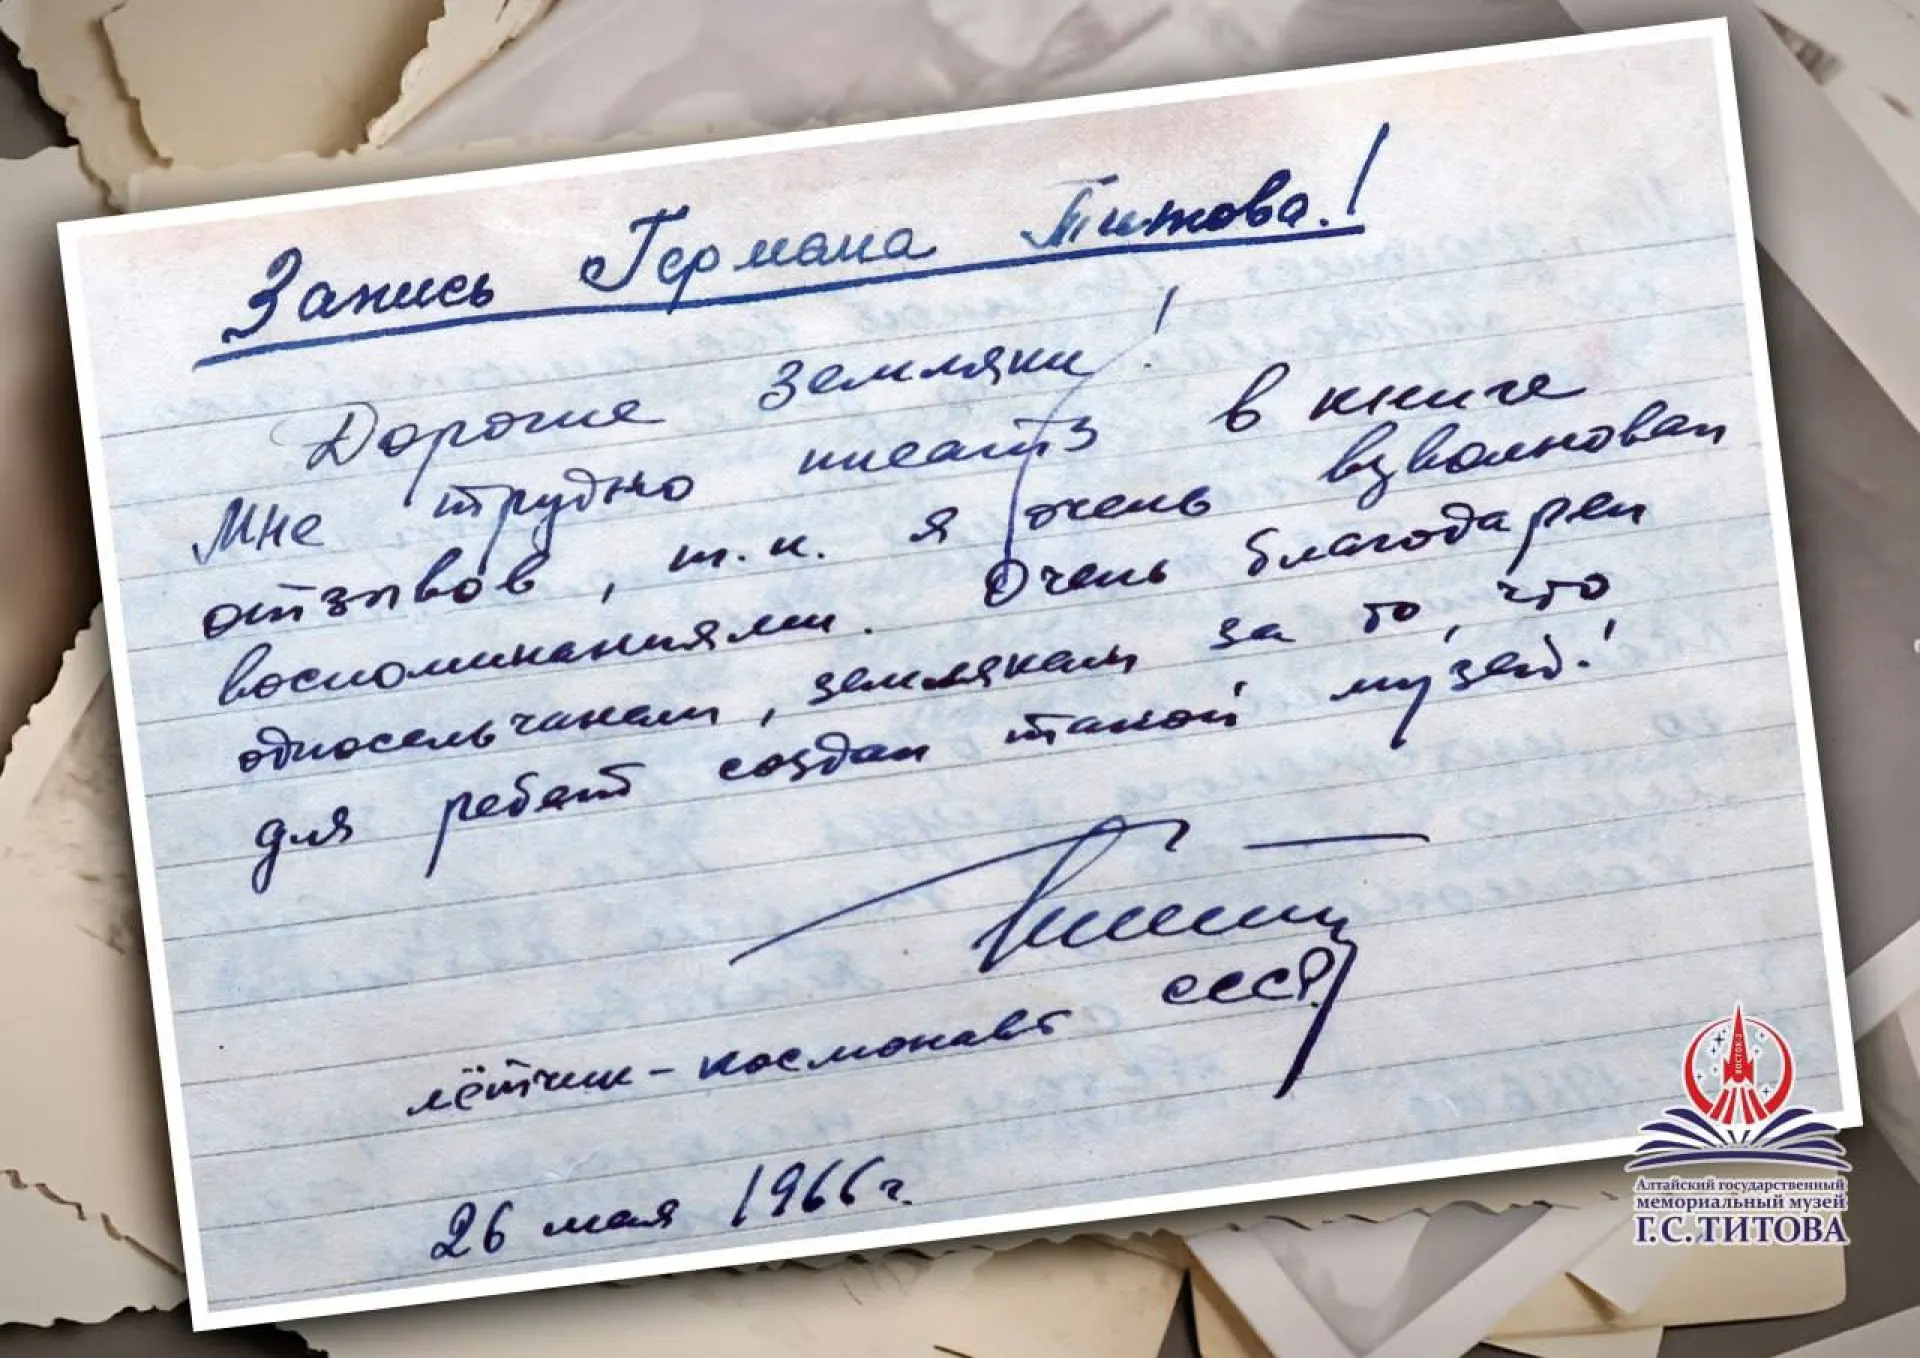 Запись Германа Титова.!
Дорогие земляки!
Мне трудно писать в книге
отзывов, т.к. я очень взволнован
воспоминаниями. Очень благодарен
односельчанам, землякам за то, что
для ребят создан такой музей.!
лётчик-космонавт СССР.
26 мая 1966 г.
ВОСТОК-2
Алтайский государственный
мемориальный музей
Г.С. ТИТОВА